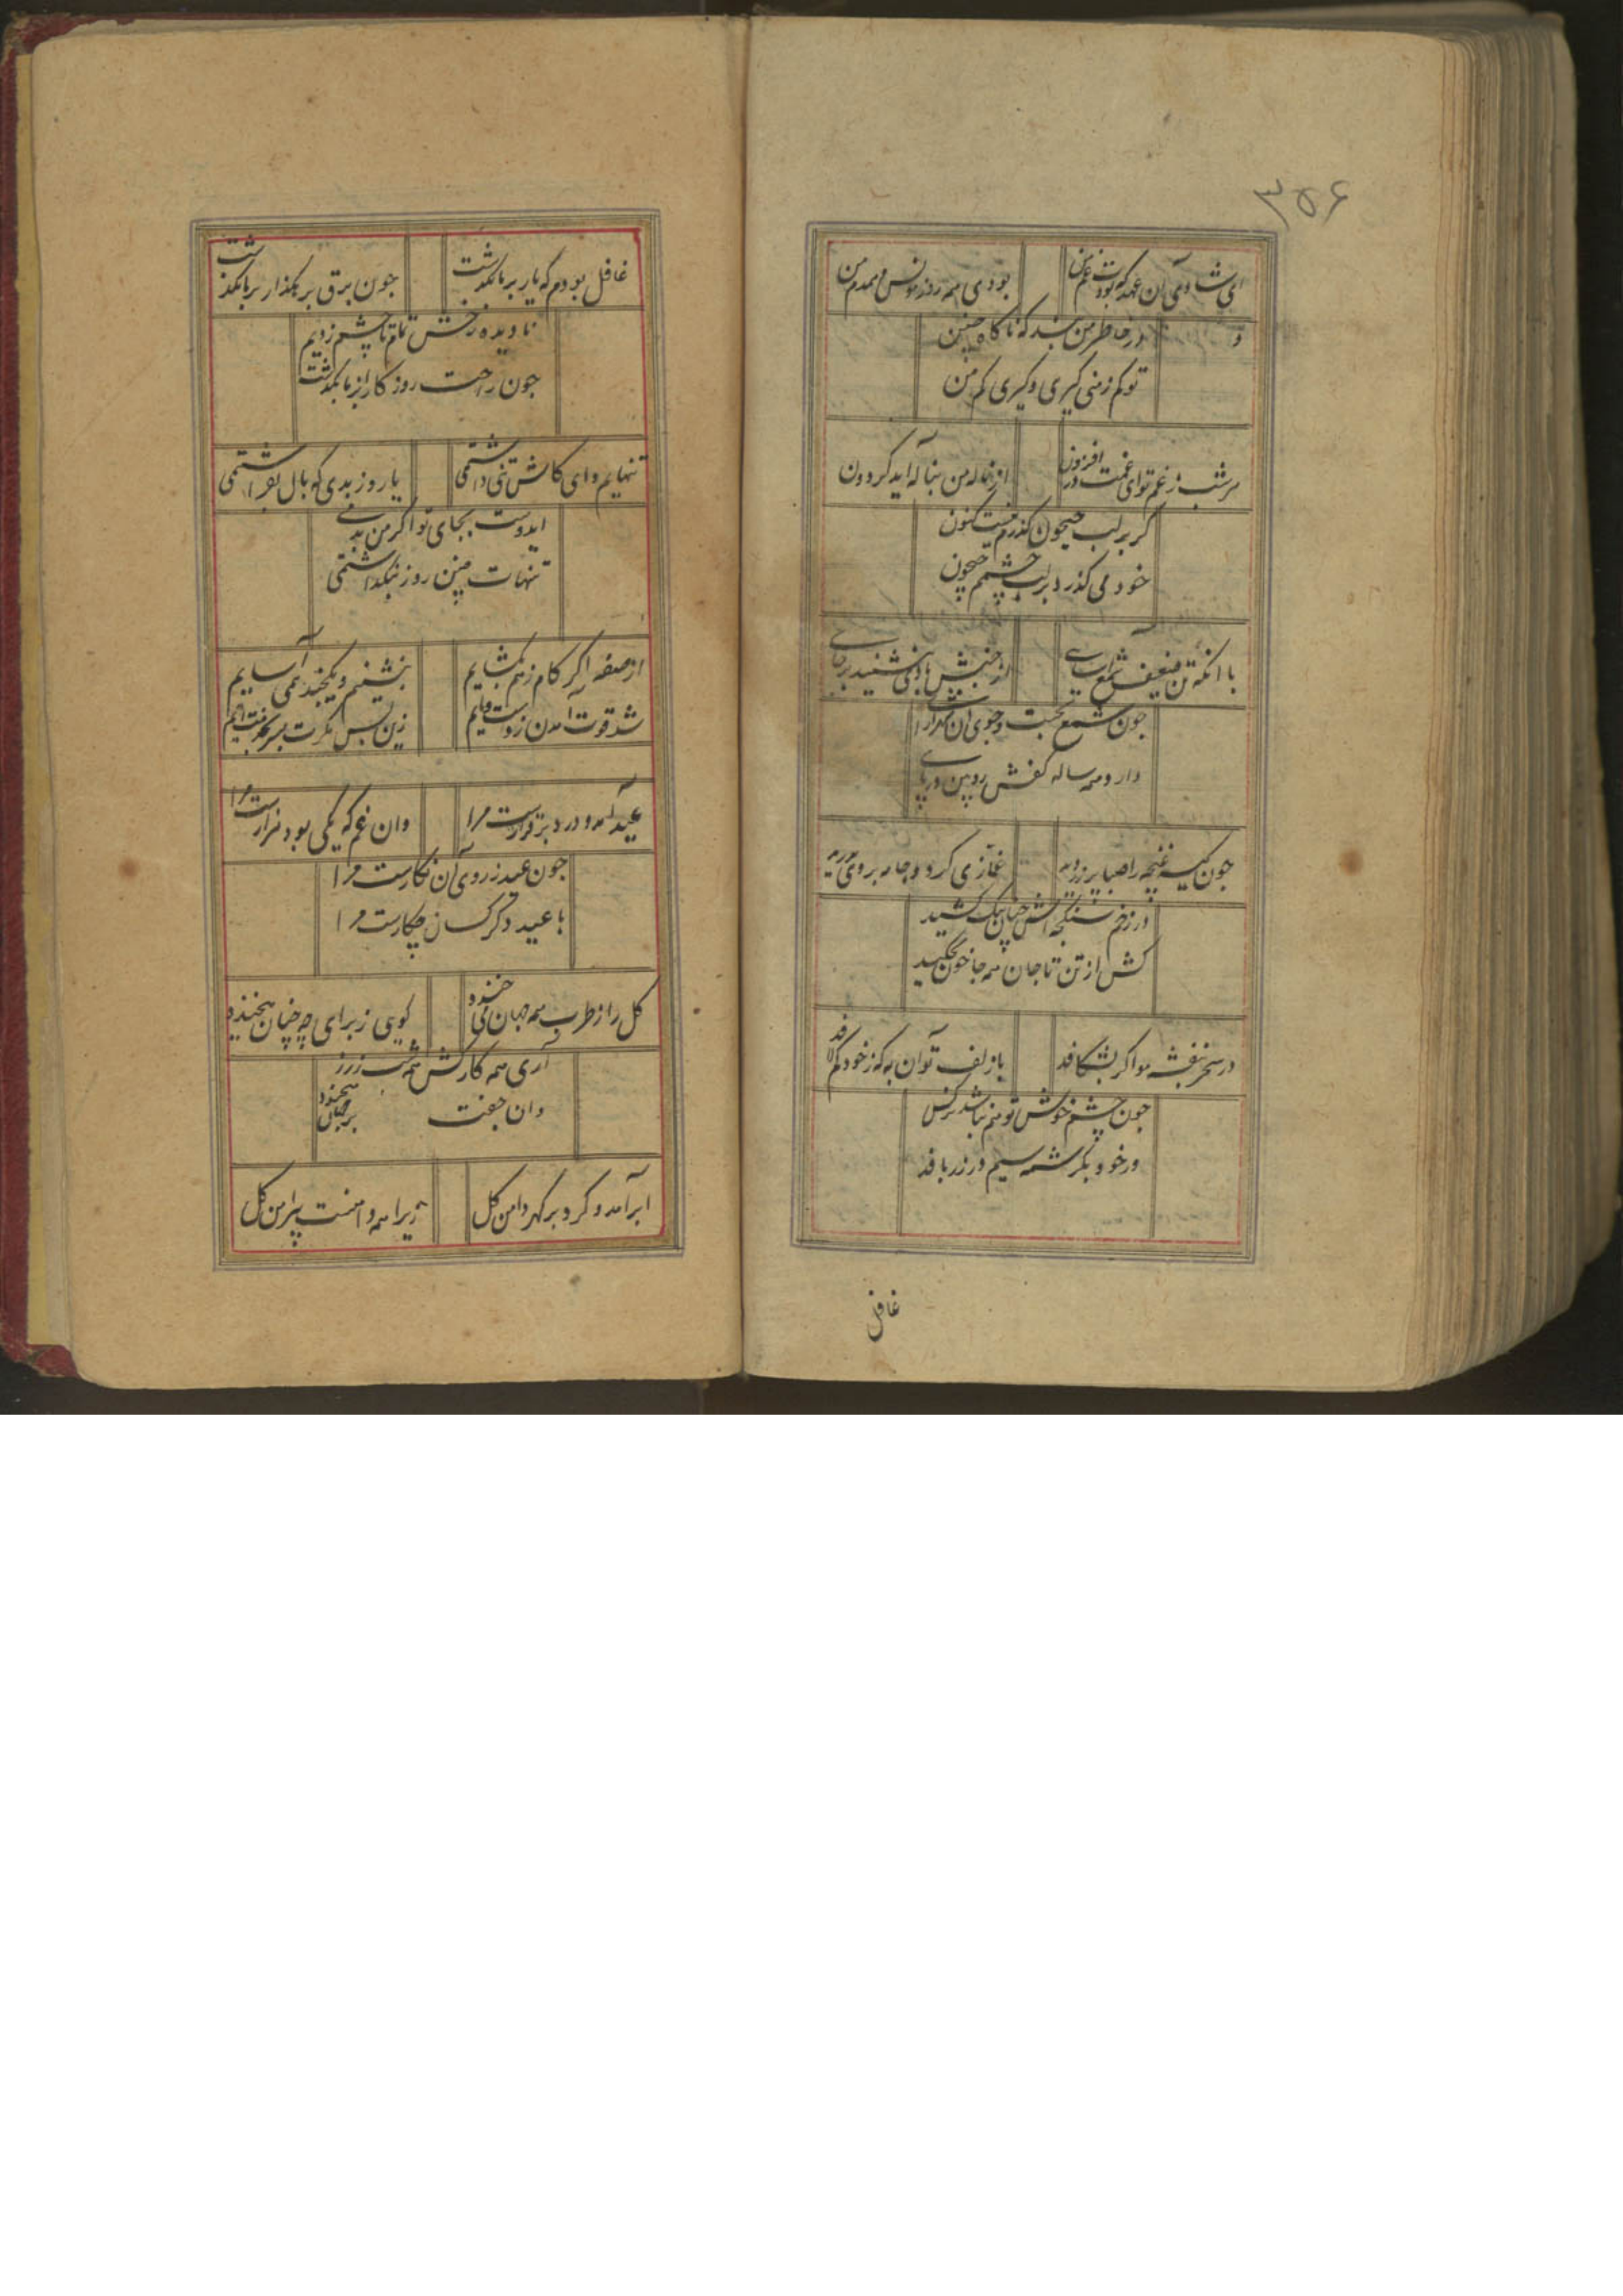 ۳۵۶
ای شادی آن عهد که بودت غم من
بودی همه روز مونس و همدم من
در خاطر من نبد که ناکاه چنین
تو کم زمنی کیری و کیری کم من
هر شب ز غم تو ای غمت روز افزون
از ناله من بناله اید کردون
کر بر لب جیحون کذرم نیست کنون
خود می کذرد بر لب چشمم جیحون
با انکه تن ضعیف شمع
از جنبش باد می نشیند بر جای
جون شمع بجست و جوی ان
دارد همه ساله کفش رویین در پای
جون کیسه غنچه را صبا پر زر دید
غمازی کرد و جامه بر وی بدرید
در زخم شکنجه اش چنان تنک کشید
کش از تن تا جان همه جا خون بچکید
در سحر بنفشه مو اکر بشکافد
با زلف تو آن به که ز خود کم لافد
جون چشم خوش تو هم نباشد نرکس
ور خود بکرشمه سیم در زر بافد
غافل
غافل بودم که یار بر ما بکذشت
جون برق بر هکذار بر ما بکذشت
نادیده رخش تمام تا چشم زدیم
جون راحت روزکار از ما بکذشت
تنهایم و ای کاش تنی داشتمی
یا روز بدی که بال بفراشتمی
ایدوست بجای تو اکر من بدمی
تنهات چنین روز بنکذاشتمی
از صفه اکر کام ز هم بکشایم
بنشینم و یکچند همی آسایم
شد قوت آمدن ز دست و پایم
زین پس مکرت بسر بخدمت آیم
عید آمد و درد برقرارست مرا
وان غم که یکی بود هزارست مرا
جون عید ز روی آن نکارست مرا
با عید دکر کسان چکارست مرا
کل را ز طرب همه جهان می خندد
کویی ز برای چه چنان میخندد
آری همه کارش همه شب زرز
وان جفت بر جهان میخندد
ابر آمد و کرد پر کهر دامن کل
زیرا همه دامنست پیرامن کل